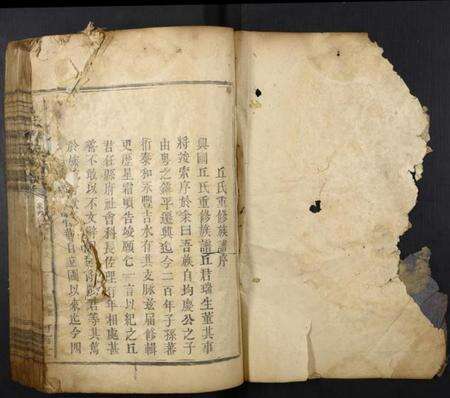 丘氏重修族譜序
興國丘氏重修族譜丘君瑞生董其事
將竣索序於余曰吾族自均慶公之子
由粵之鎮平遷興迄今二百年子孫蕃
衍泰和永豐吉水有其支脉茲届修輯
更歷星霜頃告竣願乞一言以紀之丘
君任縣府社會科長佐理有年相處甚
不敢以不文辭 君等其萬
於族 自立國以來迄今四